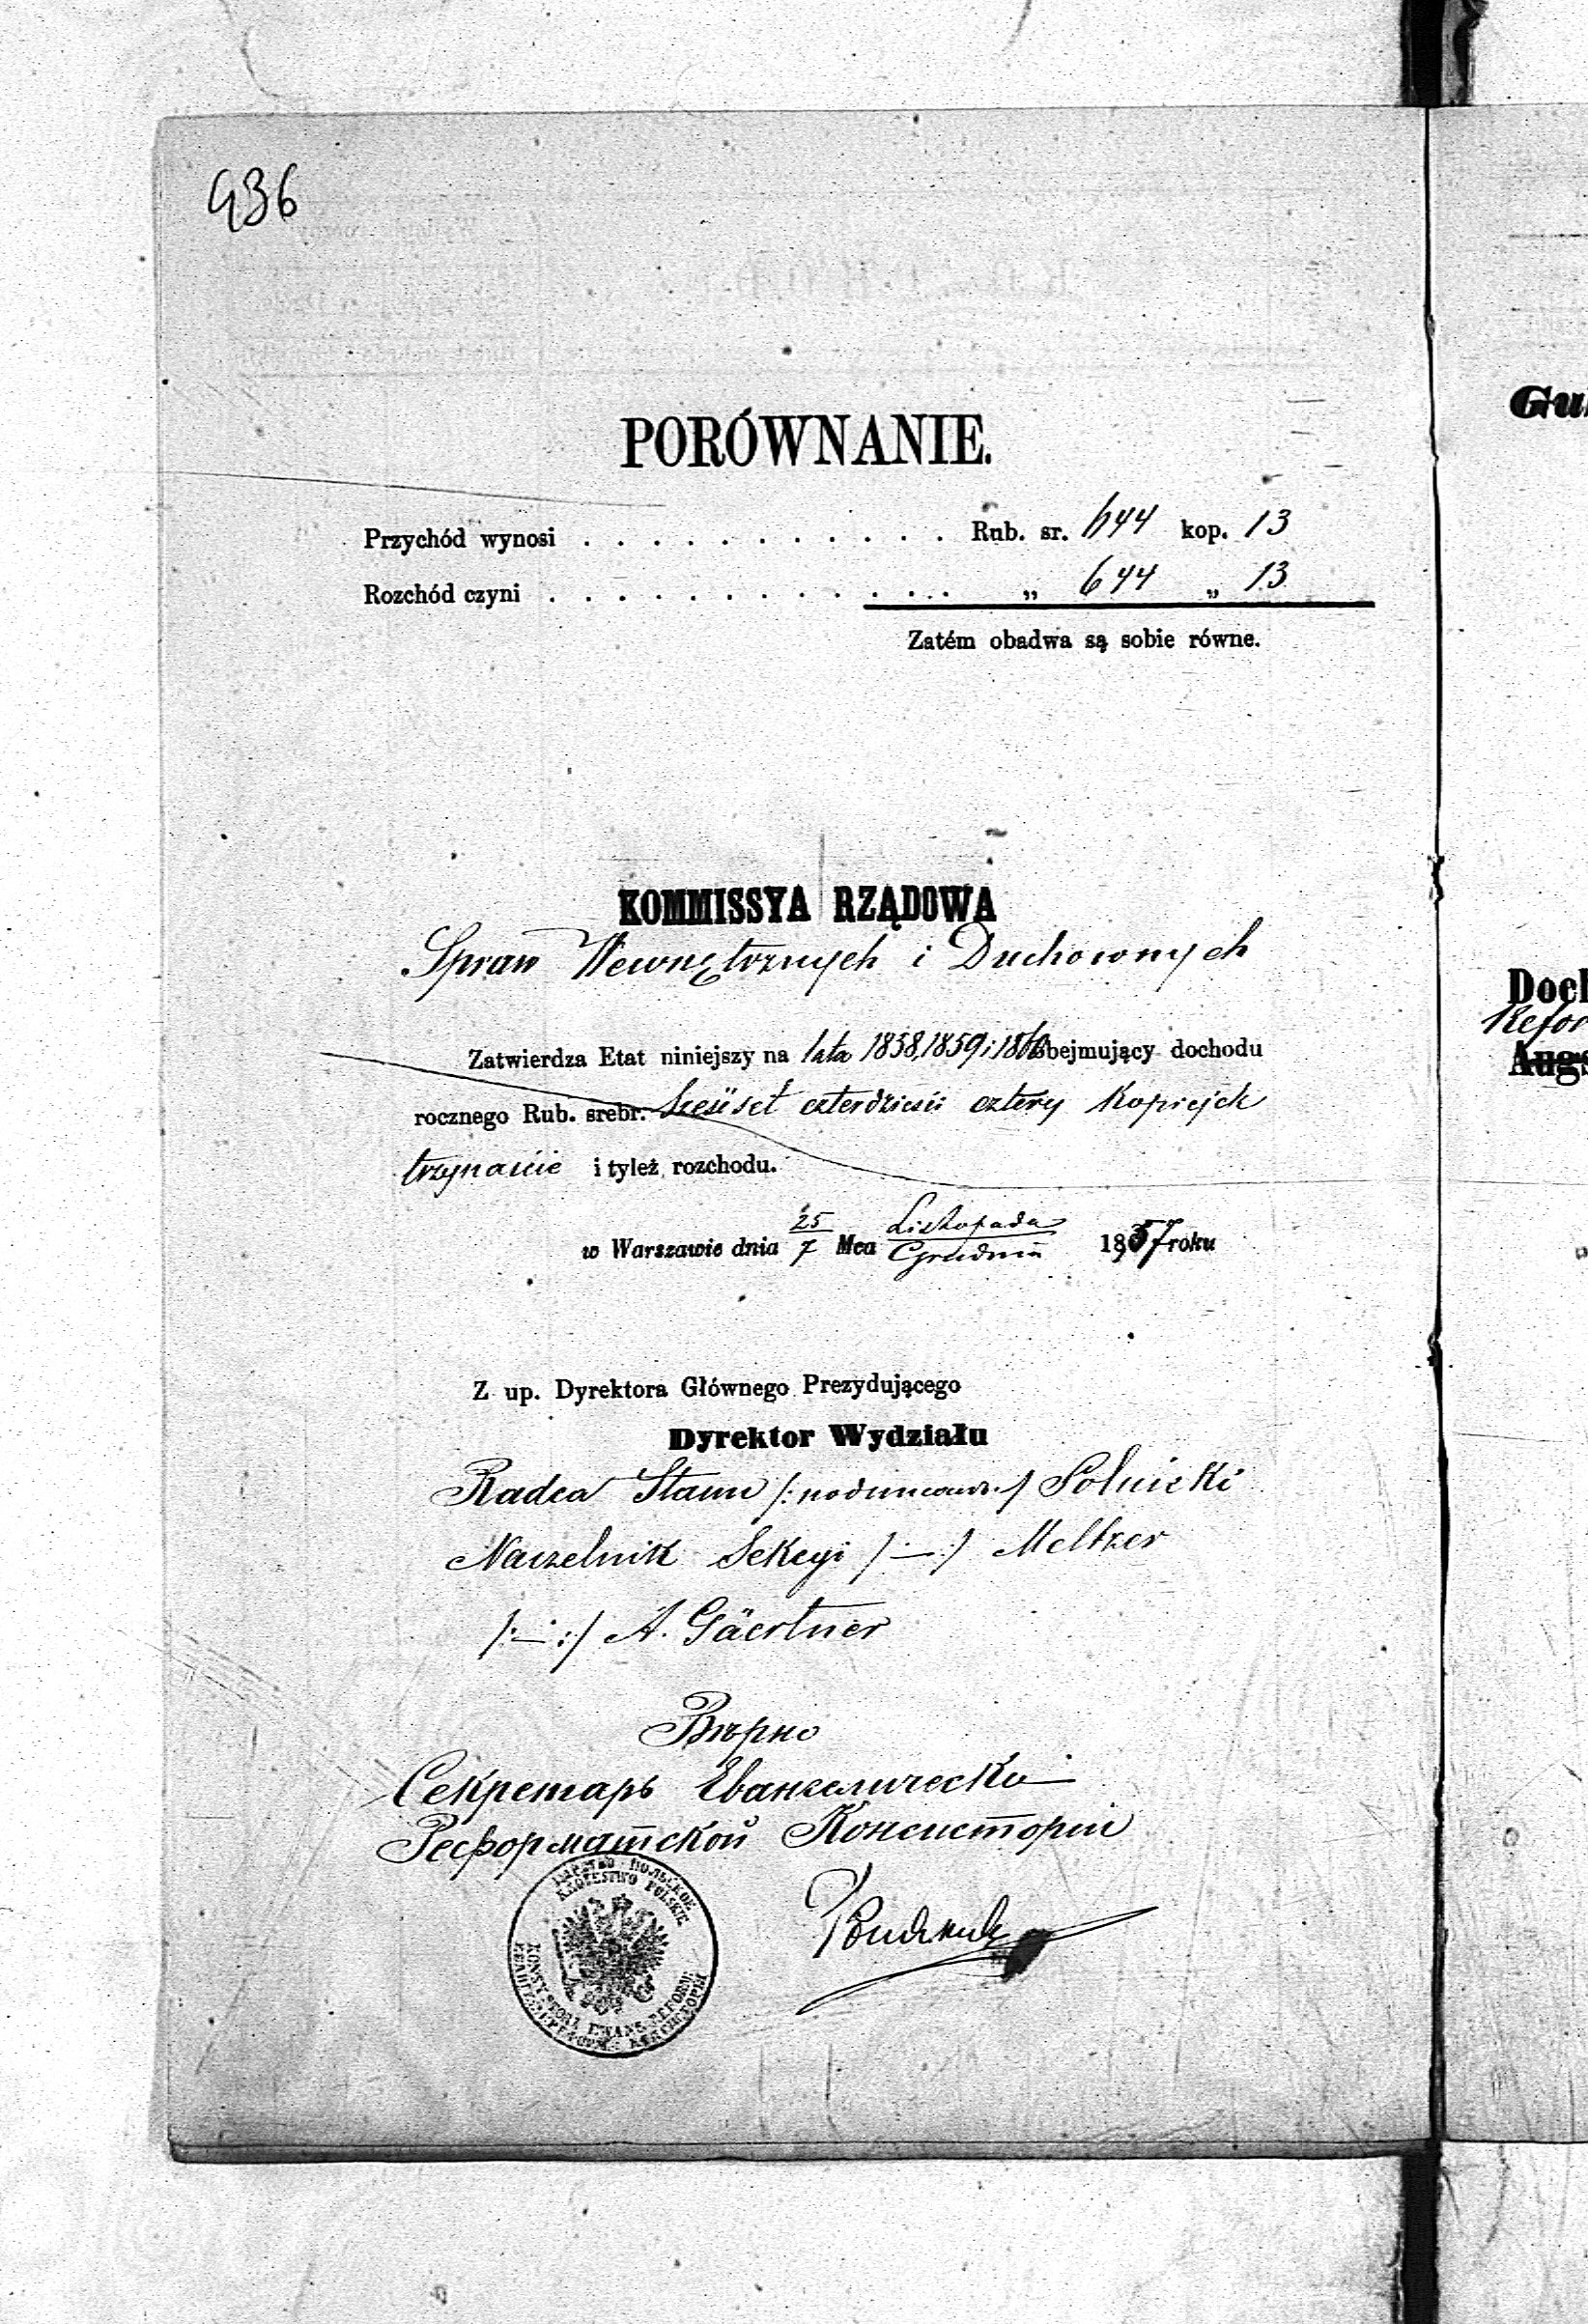 436
PORÓWNANIE.
Przychód wynosi . . . . . . . . . . . Rub. sr. 644 kop. 13
Rozchód czyni . . . . . . . . . . . . . „ 644 „ 13
Zatém obadwa są sobie równe.
KOMMISSYA RZĄDOWA
Spraw Wewnętrznych i Duchownych
Zatwierdza Etat niniejszy na lata 1858, 1859 i 1860 obejmujący dochodu
rocznego Rub. srebr. Sześćset czterdzieści cztery Kopiejek
trzynaście i tyleż rozchodu.
w Warszawie dnia 25/7 Mca Listopada/Grudnia 1857 roku
Z up. Dyrektora Głównego Prezydującego
Dyrektor Wydziału
Radca Stanu /: :/ Solnicki
Naczelnik Sekcyi /:—:/ Meltzer
/:—:/ A. Gäertner
Вѣрно
Секретарь Евангелическо
Реформатской Консисторіи
ЦАРСТВО ПОЛЬСКОЕ
KRÓLESTWO POLSKIE
KONSYSTORZ EWANG. REFORM.
Gu
Doch
Refor
Augs